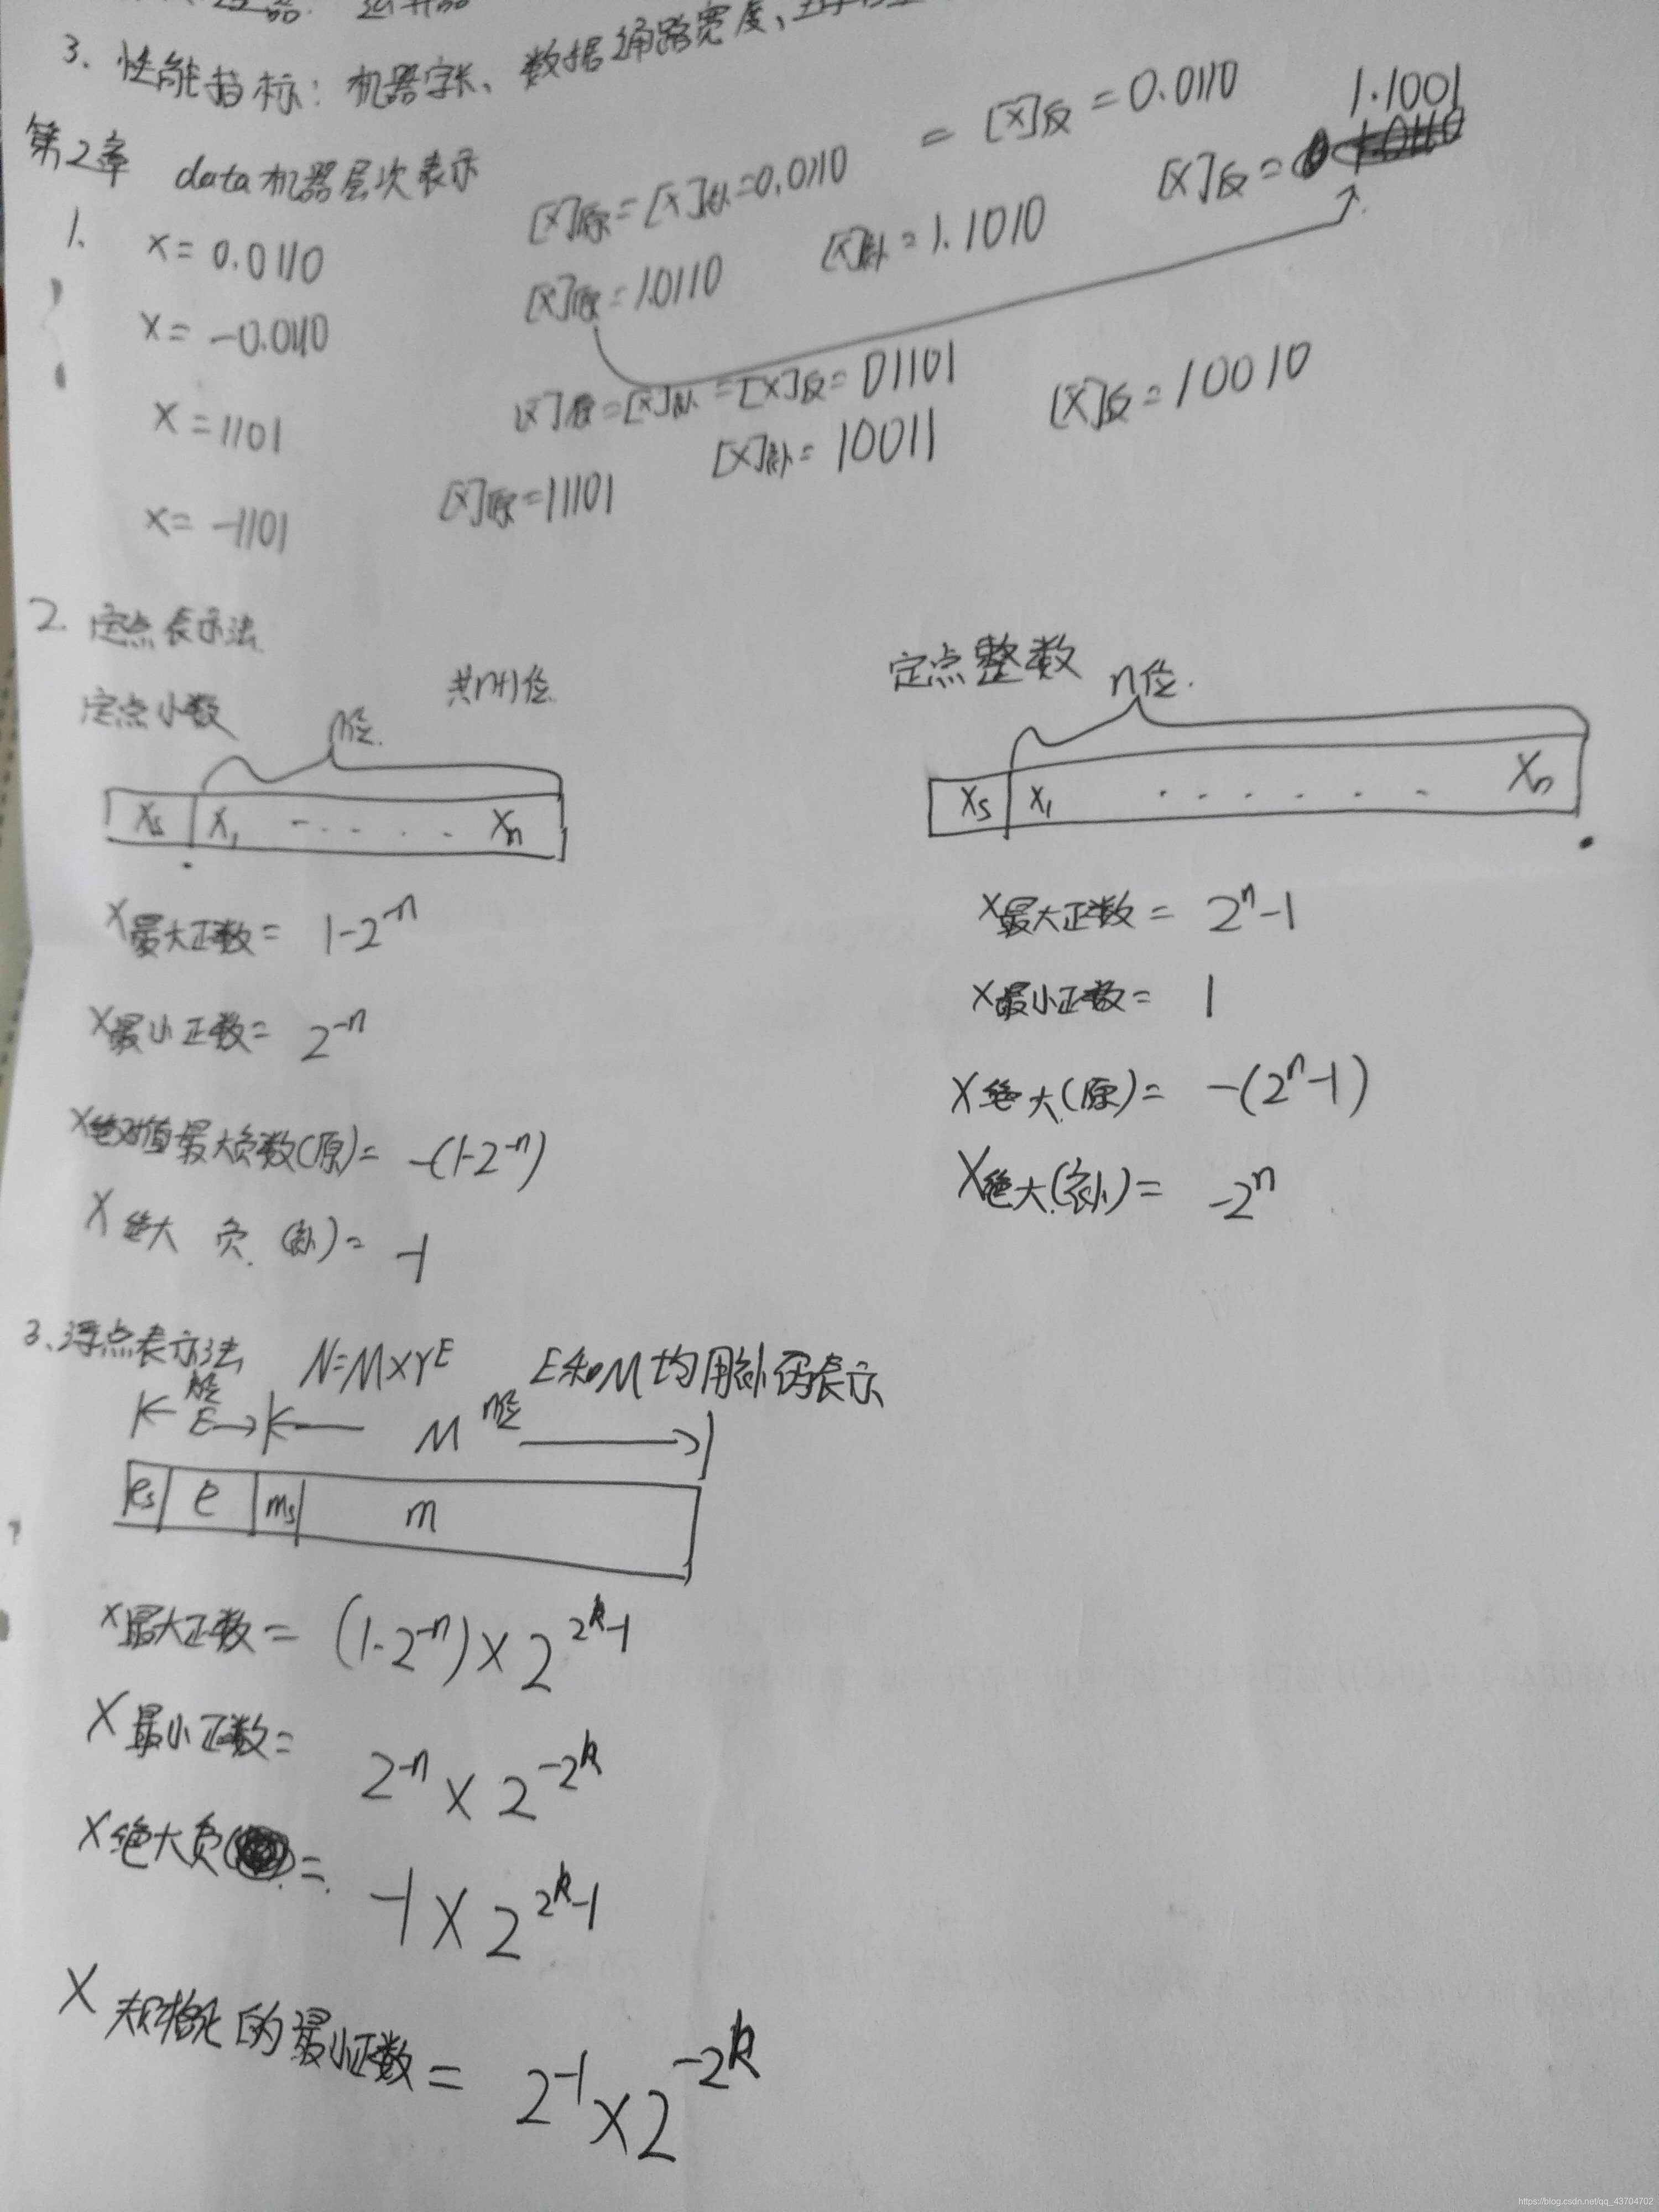 3. 性能指标: 机器字长、数据通路宽度、
第2章 data机器层次表示
1. x = 0.0110 [X]原 = [X]补 = 0.0110 = [X]反 = 0.0110
x = -0.0110 [X]原 = 1.0110 [X]补 = 1.1010 [X]反 = 1.1001
x = 1101 [X]原 = [X]补 = [X]反 = 01101
x = -1101 [X]原 = 11101 [X]补 = 10011 [X]反 = 10010
2. 定点表示法
定点小数 n位. 共n+1位
Xs X1 - · · · · Xn
X最大正数 = 1-2^-n
X最小正数 = 2^-n
X绝对值最大负数(原) = -(1-2^-n)
X绝大 负. (补) = -1
定点整数 n位.
Xs X1 · · · · · · Xn
X最大正数 = 2^n-1
X最小正数 = 1
X绝大(原) = -(2^n-1)
X绝大(补) = -2^n
3. 浮点表示法 N=M×r^E E和M均用补码表示
E M n位
es e ms m
X最大正数 = (1-2^-n)×2^(2^k-1)
X最小正数 = 2^-n × 2^(-2^k)
X绝大负 = -1×2^(2^k-1)
X规格化的最小正数 = 2^-1×2^(-2^k)
https://blog.csdn.net/qq_43704702